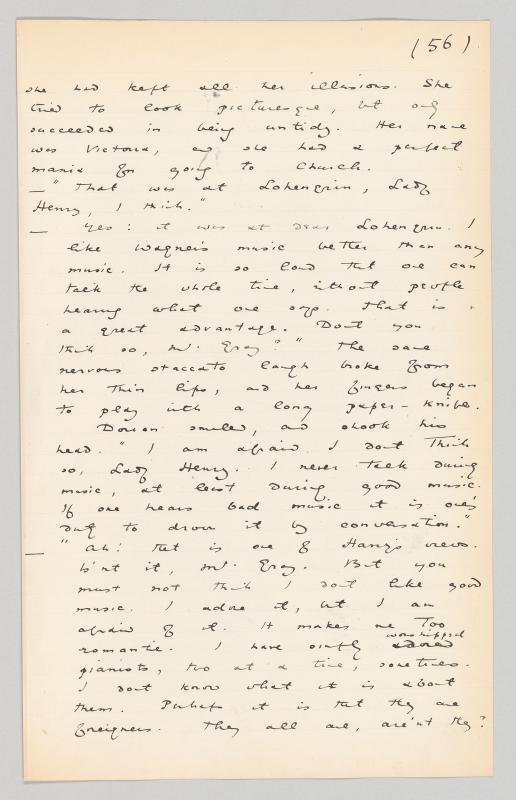 (56).
she had kept all her illusions. She
tried to look picturesque, but only
succeeded in being untidy. Her name
was Victoria, and she had a perfect
mania for going to Church.
— "That was at Lohengrin, Lady
Henry, I think."
— Yes: it was at dear Lohengrin. I
like Wagner's music better than any
music. It is so loud that one can
talk the whole time, without people
hearing what one says. That is
a great advantage. Don't you
think so, Mr. Gray?" The same
nervous staccato laugh broke from
her thin lips, and her fingers began
to play with a long paper-knife.
Dorian smiled, and shook his
head. "I am afraid I don't think
so, Lady Henry. I never talk during
music, at least during good music.
If one hears bad music it is one's
duty to drown it by conversation."
— "Ah! that is one of Harry's views.
Is'nt it, Mr. Gray. But you
must not think I don't like good
music. I adore it, but I am
afraid of it. It makes me too
worshipped
romantic. I have simply adored
pianists, two at a time, sometimes.
I don't know what it is about
them. Perhaps it is that they are
foreigners. They all are, are'nt they?